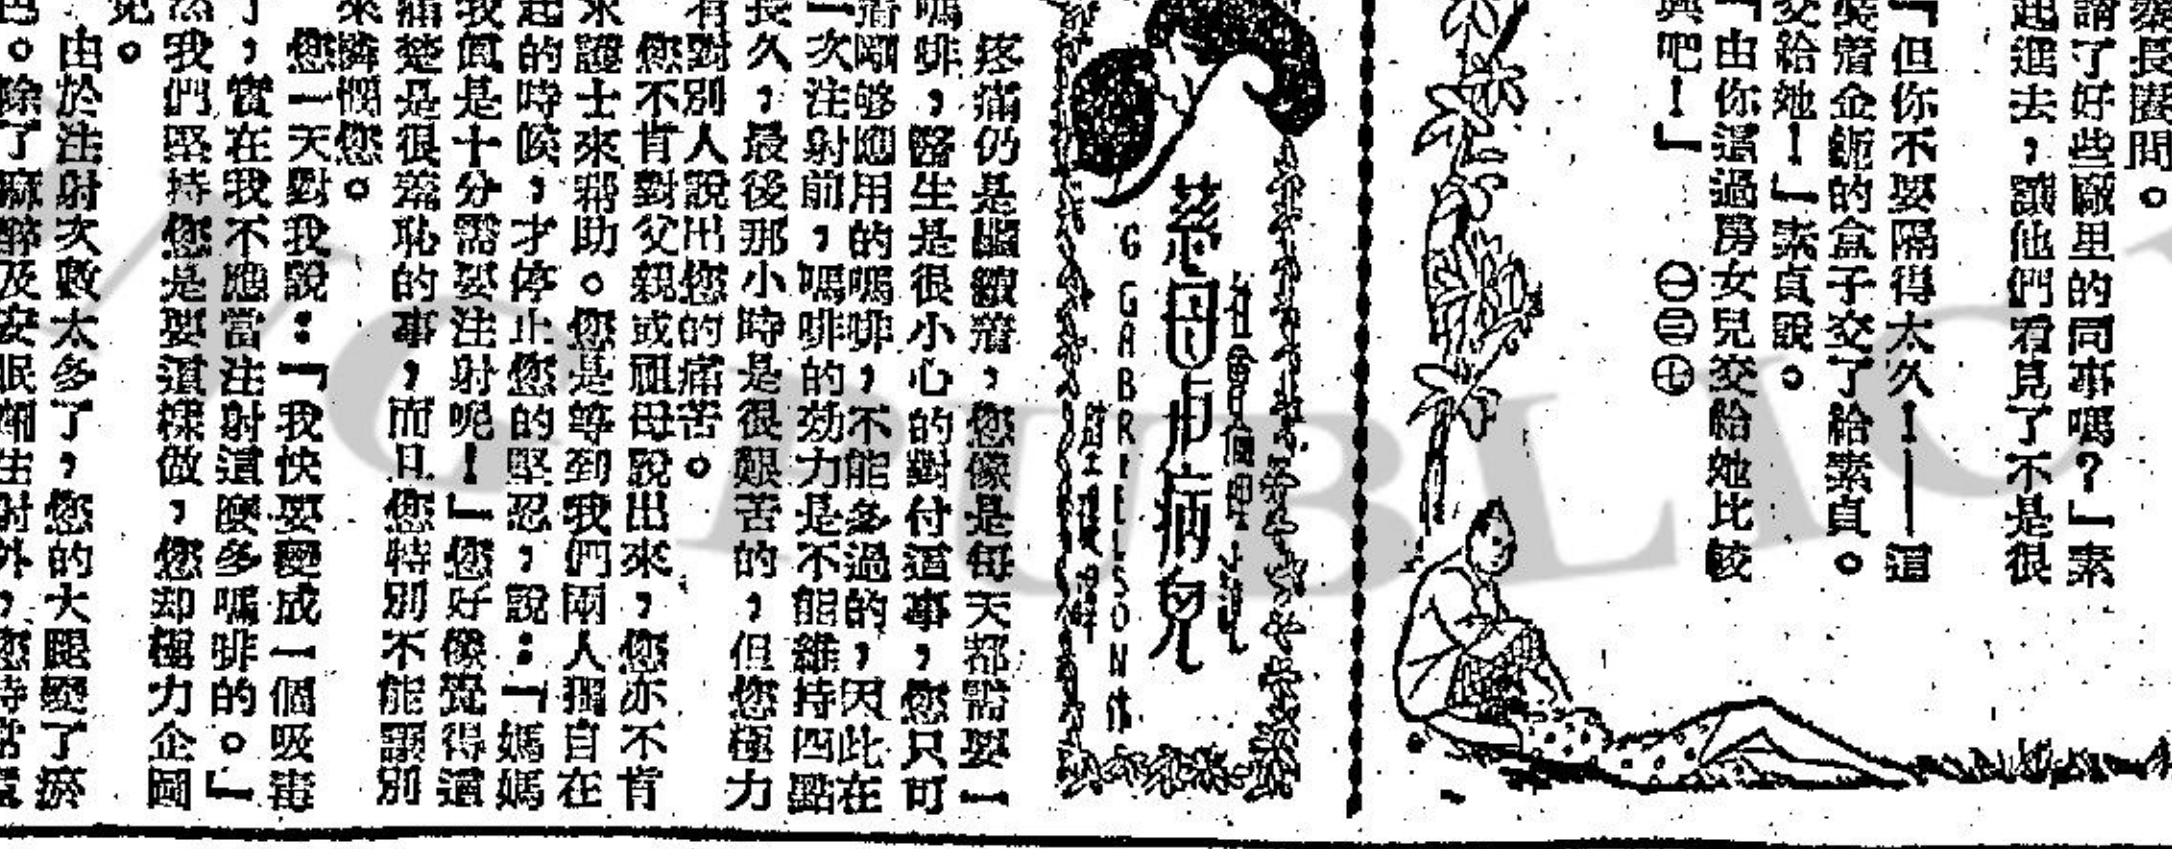 素問。
請了好些廠里的同事嗎？」素
起進去，讓他們看見了不是很
「但你不要隔得太久！——這
裝着金鈪的盒子交了給素貞。
交給她！」素貞說。
「由你這過房女兒交給她比較
興吧！」
㊀㊂㊆
慈母與病兒
G GABRIELSON 作
疼痛仍是繼續着，您像是每天都需要一
嗎啡，醫生是很小心的對付這事，您只可
着剛够應用的嗎啡，不能多過的，因此在
一次注射前，嗎啡的効力是不能維持四點
長久，最後那小時是很艱苦的，但您極力
對別人說出您的痛苦。
您不肯對父親或祖母說出來，您亦不肯
來護士來帮助。您是等到我們兩人獨自在
起的時候，才停止您的堅忍，說：「媽媽
我眞是十分需要注射呢！」您好像覺得這
痛楚是很羞恥的事，而且您特別不能讓別
來憐憫您。
您一天對我說：「我快要變成一個吸毒
了，實在我不應當注射這麽多嗎啡的。」
我們堅持您是要這樣做，您却極力企圖
免。
由於注射次數太多了，您的大腿變了瘀
色。除了麻醉及安眠劑注射外，您時常
PUBLIC